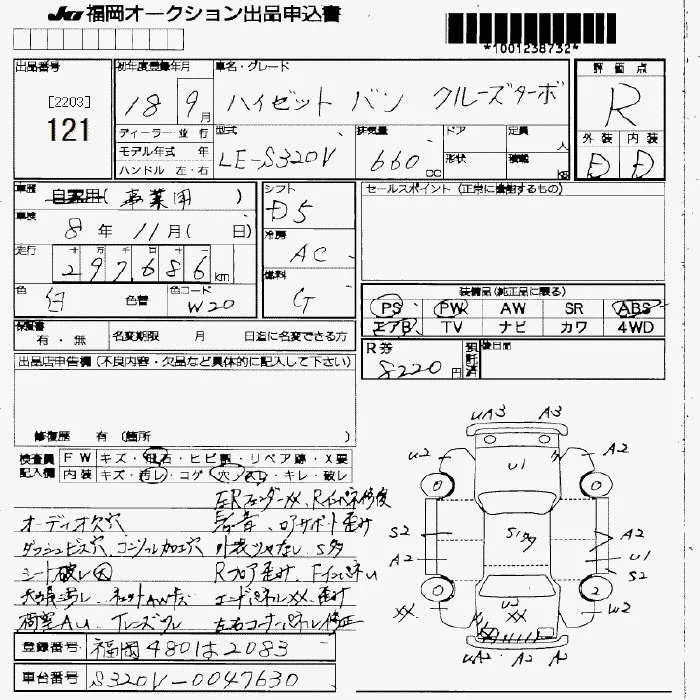 JU福岡オークション出品申込書
*1001238732*
出品番号
[2203]
121
初年度登録年月
18 9月
車名・グレード
ハイゼット バン クルーズターボ
評価点
R
外装 内装
D D
ディーラー・並行
モデル年式 年
ハンドル 左・右
型式
LE-S320V
排気量
660cc
ドア
形状
定員
人
積載
kg
車歴
自家用( 事業用 )
車検
8年 11月( 日)
走行
十 万 千 百 十 一
297686km
色
白
色替
色コード
W20
シフト
D5
冷房
AC
燃料
G
セールスポイント (正常に稼働するもの)
装備品(純正品に限る)
PS PW AW SR ABS
エアB TV ナビ カワ 4WD
保証書
有・無
名変期限 月 日迄に名変できる方
R券
8220円
預託済
後日間
出品店申告欄(不良内容・欠品など具体的に記入して下さい)
修復歴 有 (箇所
検査員
記入欄
FW キズ・飛石・ヒビ・リペア跡・X要
内装 キズ・汚レ・コゲ・穴・スレ・キレ・破レ
左Rフェンダー XX、Rインパネ修復
オーディオ欠穴
ダッシュビス穴 コンソール加工穴 外装ツヤなし S多
シート破レ大 Rフロア歪み、Fインパネu
エンドパネルXX 歪み
左右コーナーパネル修正
登録番号
福岡480は2083
車台番号
S320V-0047630
uA3 A3
u2 A2
u1
0 0
S2 A2
S1多
A2 u1
S2
0 2
XX u2 W2
XX
uA2 A2 A2 uA2